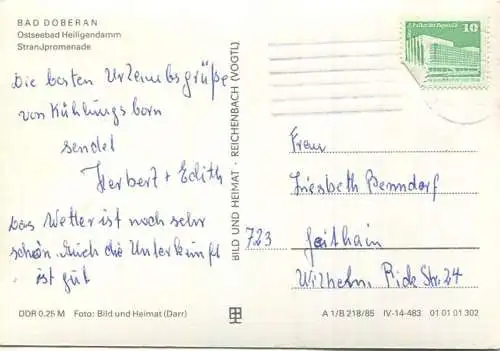 BAD DOBERAN
Ostseebad Heiligendamm
Strandpromenade
Die besten Urlaubsgrüße
von Kühlungsborn
sendet
Herbert + Edith
Das Wetter ist noch sehr
schön. Auch die Unterkunft
ist gut
DDR 0,25 M Foto: Bild und Heimat (Darr)
BILD UND HEIMAT · REICHENBACH (VOGTL)
10
Frau
Liesbeth Benndorf
723 Geithain
Wilhelm. Pick Str. 24
A 1/B 218/85 IV-14-483 01 01 01 302